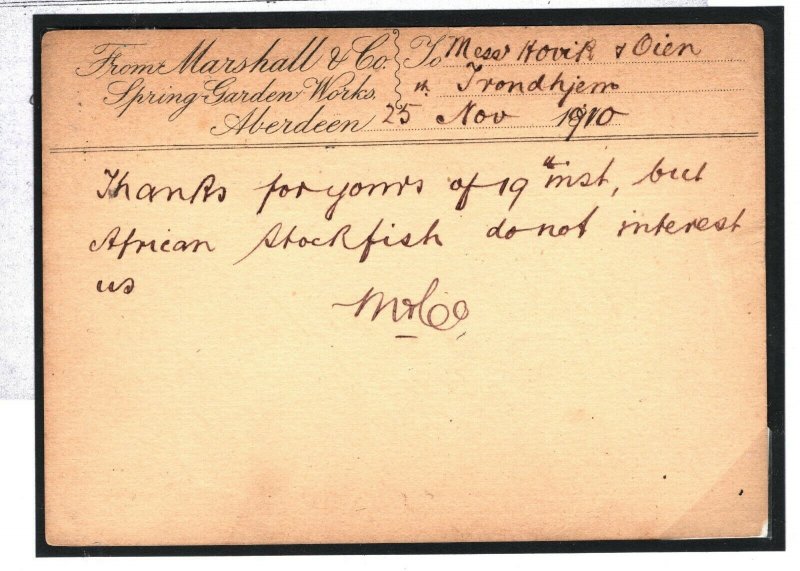 From Marshall & Co. To Messrs Hovik & Oien
Spring Garden Works. Trondhjem
Aberdeen 25 Nov 1910
Thanks for yours of 19th inst, but
African Stockfish do not interest
us
M & Co